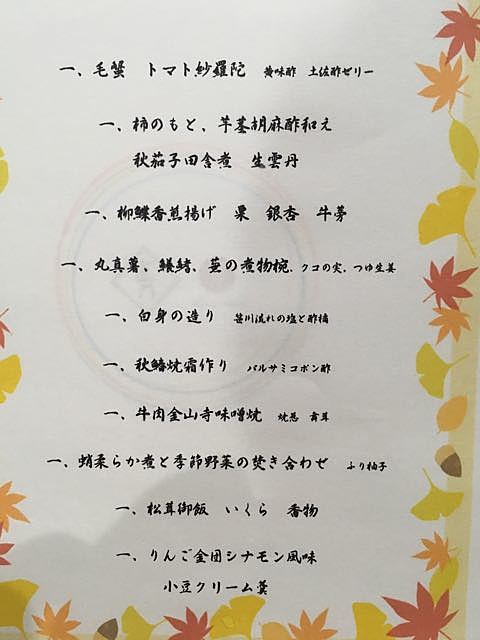 一、毛蟹　トマト紗羅陀　黄味酢　土佐酢ゼリー
一、柿のもと、芋茎胡麻酢和え
秋茄子田舎煮　生雲丹
一、柳鰈香煎揚げ　栗　銀杏　牛蒡
一、丸真薯、鱶鰭、蕪の煮物椀、クコの実、つゆ生姜
一、白身の造り　笹川流れの塩と酢橘
一、秋鰆焼霜作り　バルサミコポン酢
一、牛肉金山寺味噌焼　焼葱　舞茸
一、蛸柔らか煮と季節野菜の焚き合わせ　ふり柚子
一、松茸御飯　いくら　香物
一、りんご金団シナモン風味
小豆クリーム羹